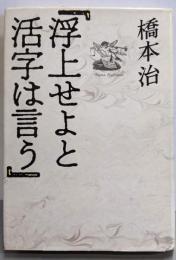 橋本治
『浮上せよと
活字は言う』